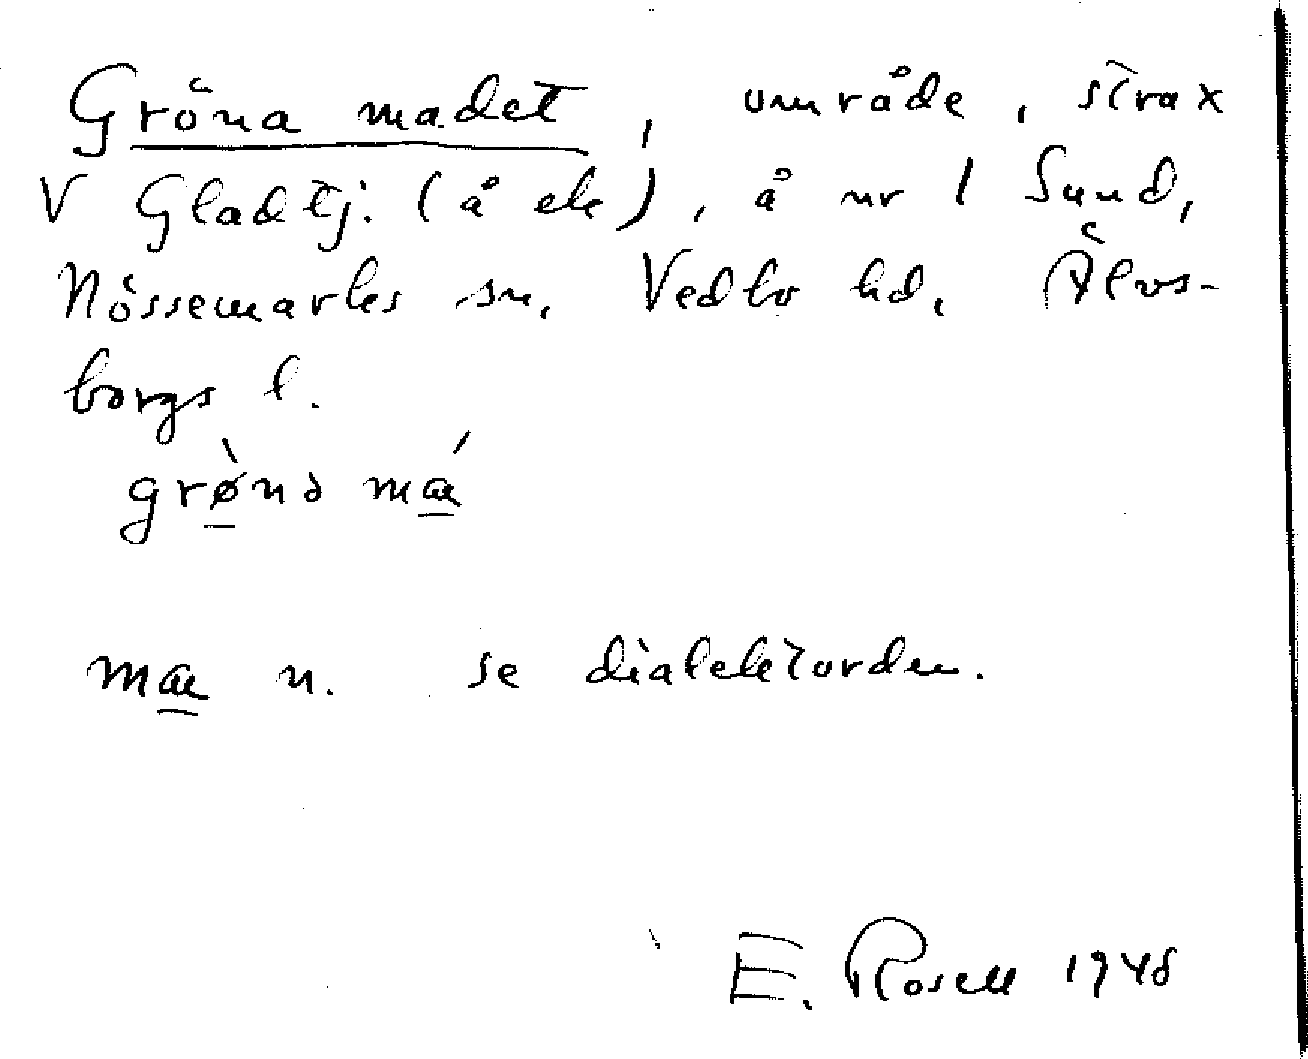 Gröna madet, område, strax
V Gladtj. (å ek), å nr 1 Sund,
Nössemarks sn. Vedbo hd. Älvs-
borgs l.
grø̀nə mǽ
mæ n. se dialektorden.
E. Rosell 1948